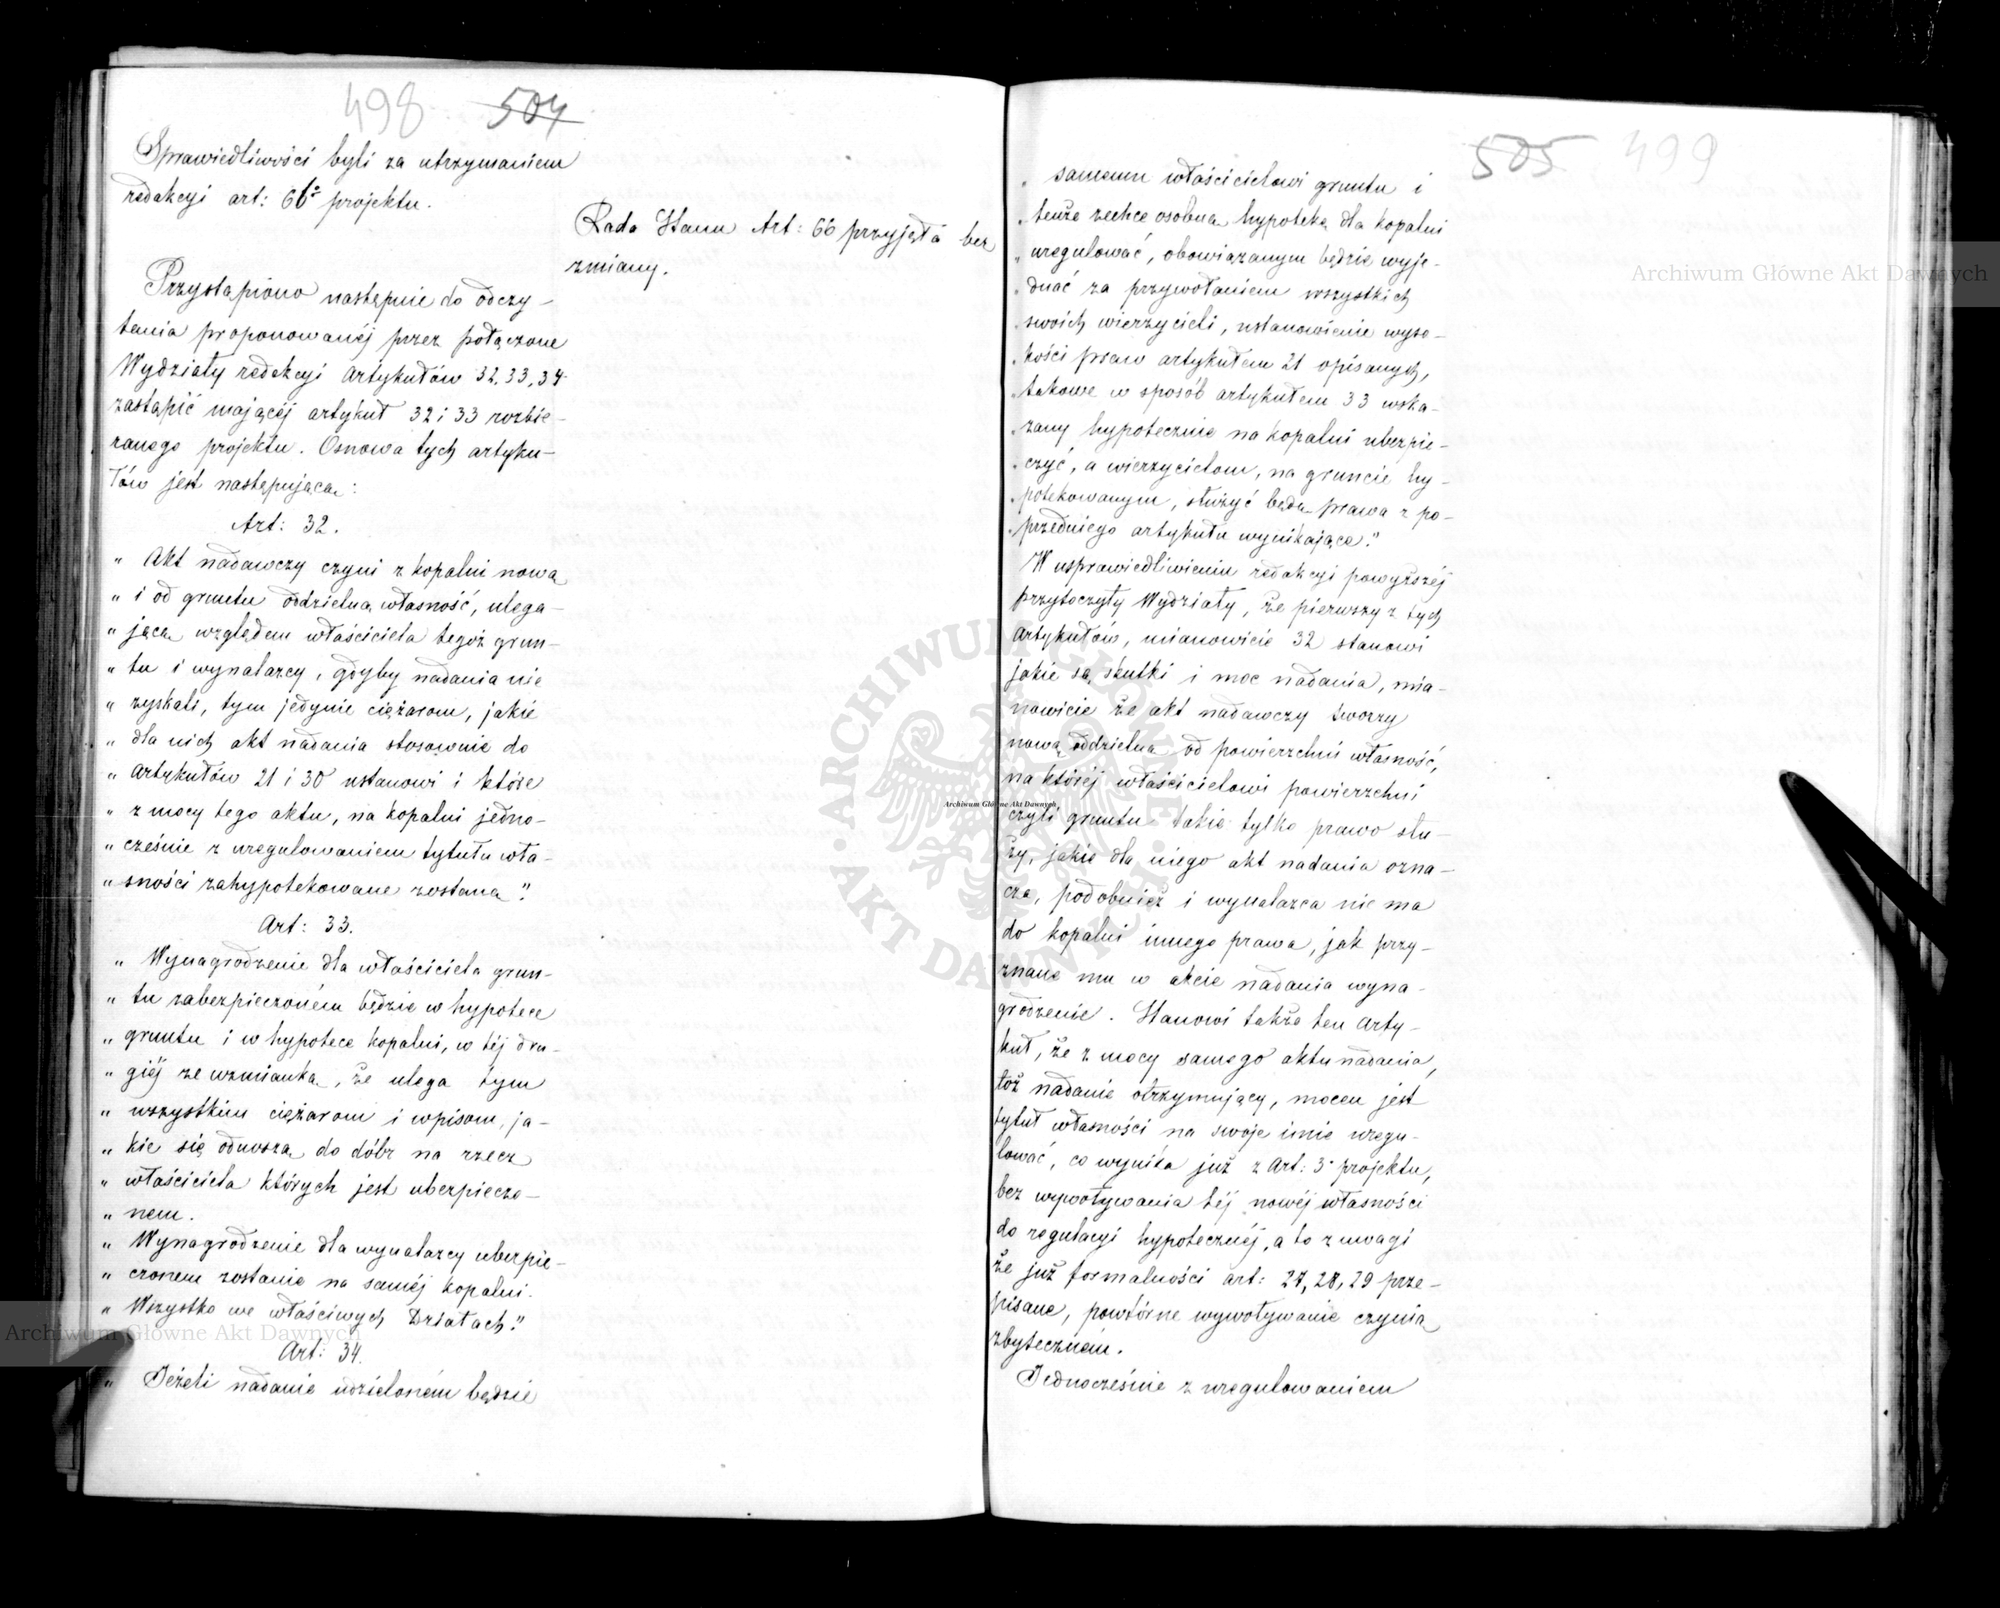 498 504
Sprawiedliwości byli za utrzymaniem
redakcyi art: 66º projektu.
Rada Stanu Art: 66 przyjęła bez
zmiany.
Przystąpiono następnie do odczy-
tania proponowanéj przez połączone
Wydziały redakcyi Artykułów 32, 33, 34
zastąpić mającéj artykuł 32 i 33 rozbie-
ranego projektu. Osnowa tych artyku-
łów jest następująca:
Art: 32.
" Akt nadawczy czyni z kopalni nową
" i od gruntu oddzielną własność, ulega-
" jącą względem właściciela tegoż grun-
" tu i wynalazcy, gdyby nadania nie
" zyskali, tym jedynie ciężarom, jakie
" dla nich akt nadania stosownie do
" Artykułów 21 i 30 ustanowi i które
" z mocy tego aktu, na kopalni jedno-
" cześnie z uregulowaniem tytułu wła-
" sności zahypotekowane zostaną."
Art: 33.
" Wynagrodzenie dla właściciela grun-
" tu zabezpieczoném będzie w hypotece
" gruntu i w hypotece kopalni, w téj dru-
" giéj ze wzmianką, że ulega tym
" wszystkim ciężarom i wpisom, ja-
" kie się odnoszą do dóbr na rzecz
" właściciela których jest ubezpieczo-
" nem.
" Wynagrodzenie dla wynalazcy ubezpie-
" czonem zostanie na saméj kopalni.
" Wszystko we właściwych Działach."
Art: 34.
" Jeżeli nadanie udzieloném będzie
505 499
" samemu właścicielowi gruntu i
" tenże zechce osobną hypotekę dla kopalni
" uregulować, obowiązanym będzie wyje-
" dnać za przywołaniem wszystkich
" swoich wierzycieli, ustanowienie wyso-
" kości praw artykułem 21 opisanych,
" takowe w sposób artykułem 33 wska-
" zany hypotecznie na kopalni ubezpie-
" czyć, a wierzycielom, na gruncie hy-
" potekowanym, służyć będą prawa z po-
" przedniego artykułu wynikające."
W usprawiedliwieniu redakcyi powyższéj
przytoczyły Wydziały, że pierwszy z tych
Artykułów, mianowicie 32 stanowi
jakie są skutki i moc nadania, mia-
nowicie że akt nadawczy tworzy
nową oddzielną od powierzchni własność,
na któréj właścicielowi powierzchni
czyli gruntu takie tylko prawo słu-
ży, jakie dla niego akt nadania ozna-
cza, podobnież i wynalazca nie ma
do kopalni innego prawa, jak przy-
znane mu w akcie nadania wyna-
grodzenie. Stanowi także ten Arty-
kuł, że z mocy samego aktu nadania,
toż nadanie otrzymujący, mocen jest
tytuł własności na swoje imie uregu-
lować, co wynika już z Art: 3º projektu,
bez wywoływania téj nowéj własności
do regulacyi hypotecznéj, a to z uwagi
że już formalności art: 27, 28, 29 prze-
pisane, powtórne wywoływanie czynią
zbyteczném.
Jednocześnie z uregulowaniem
Archiwum Główne Akt Dawnych
Archiwum Główne Akt Dawnych
Archiwum Główne Akt Dawnych
ARCHIWUM GŁÓWNE AKT DAWNYCH